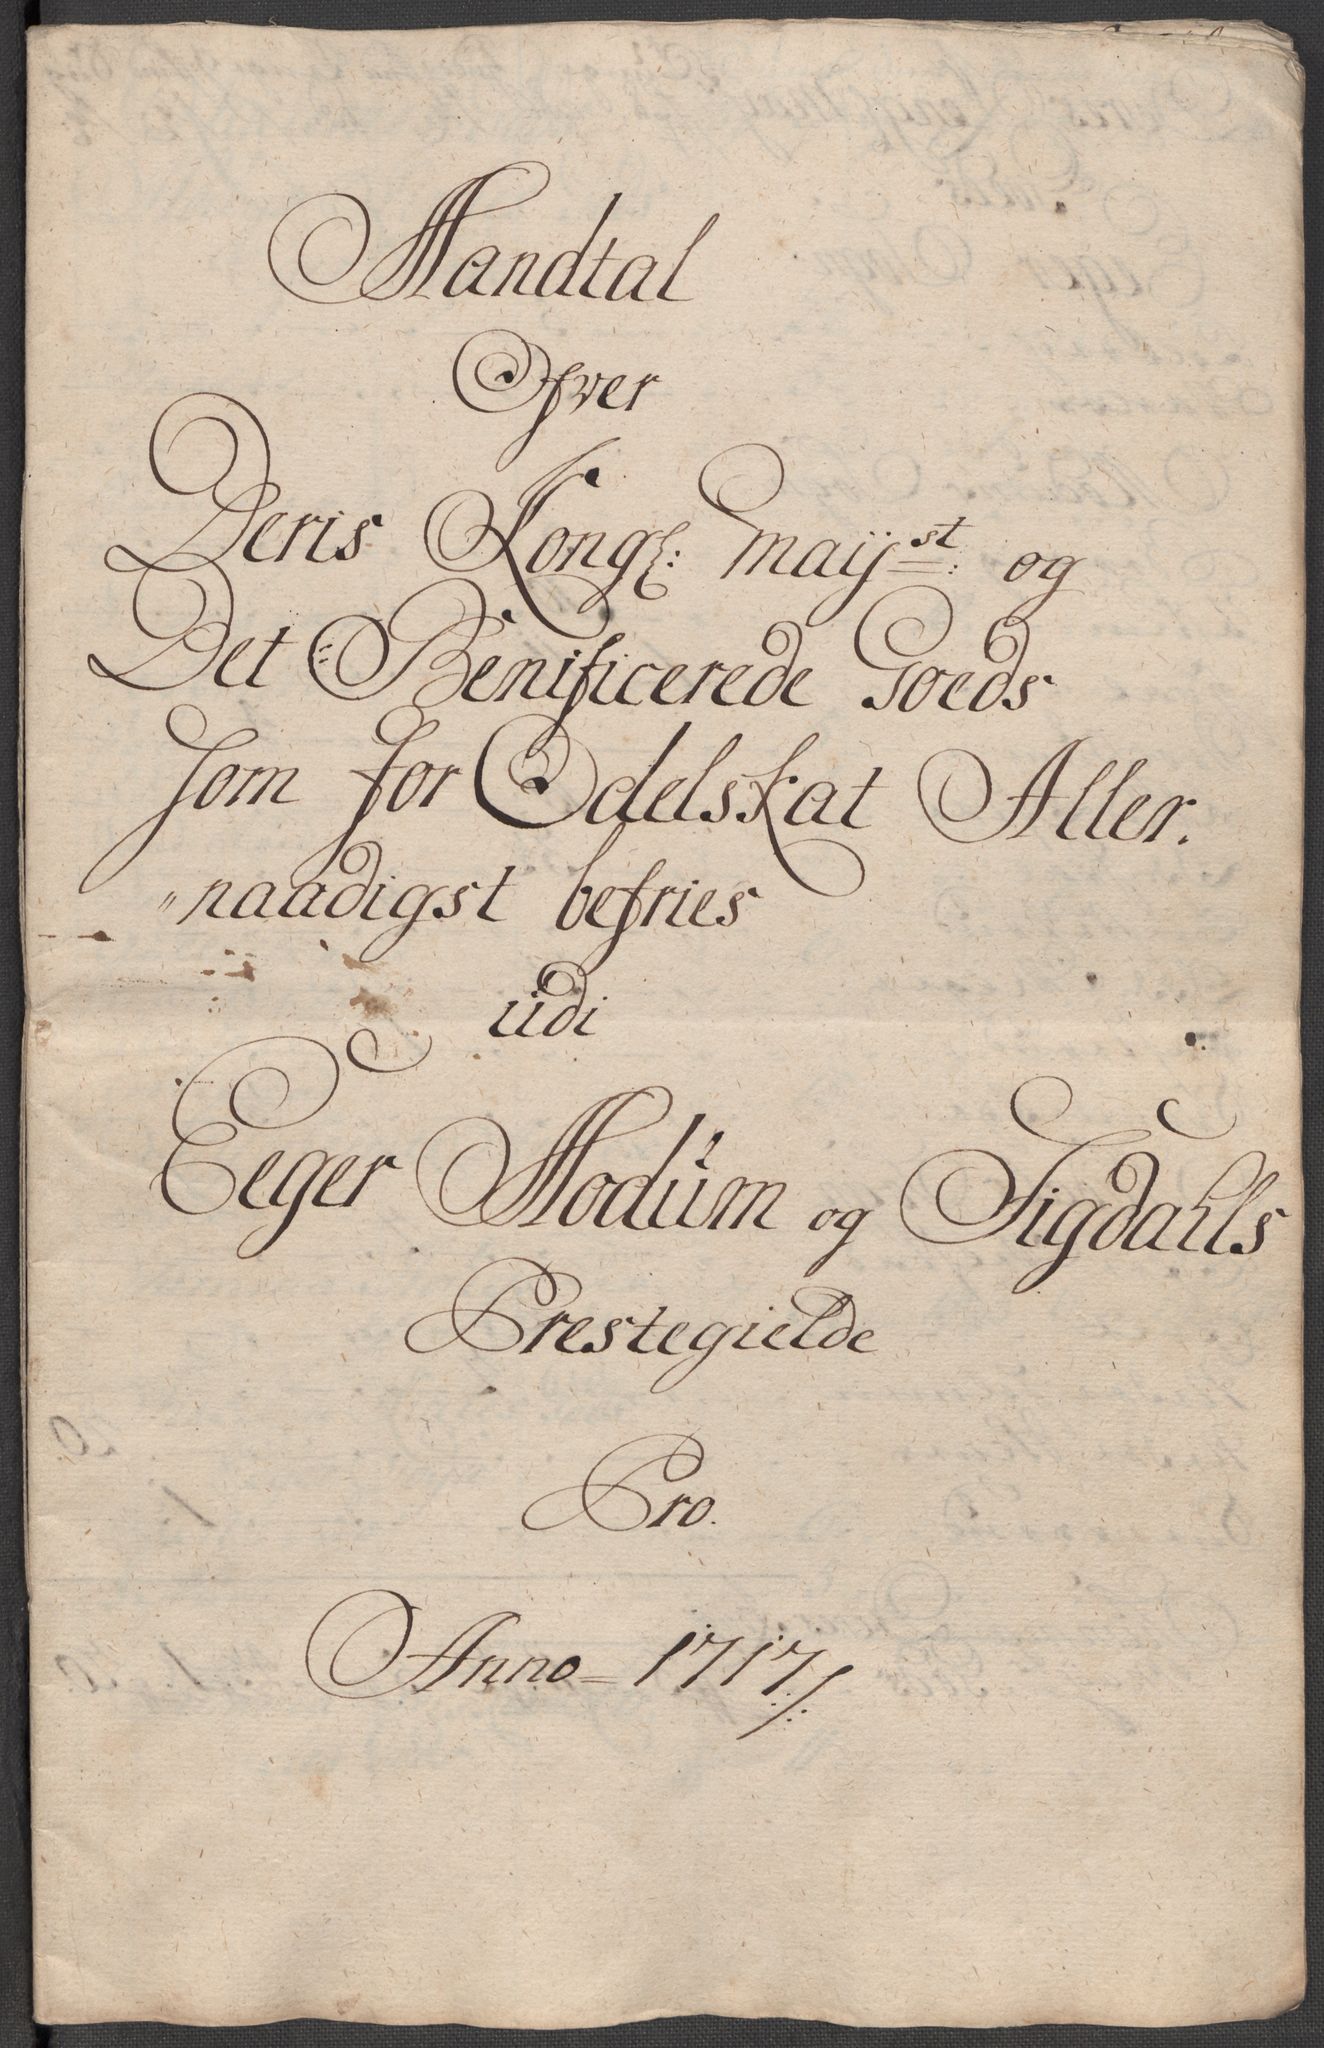 Mandtal
Ofver
Deris Kongl: Maijst: og
Det Benificerede Goeds
som for Odelskat Aller.
"naadigst befries
udi
Eeger Modüm og Sigdahls
Prestegielde
Pro.
Anno = 1717